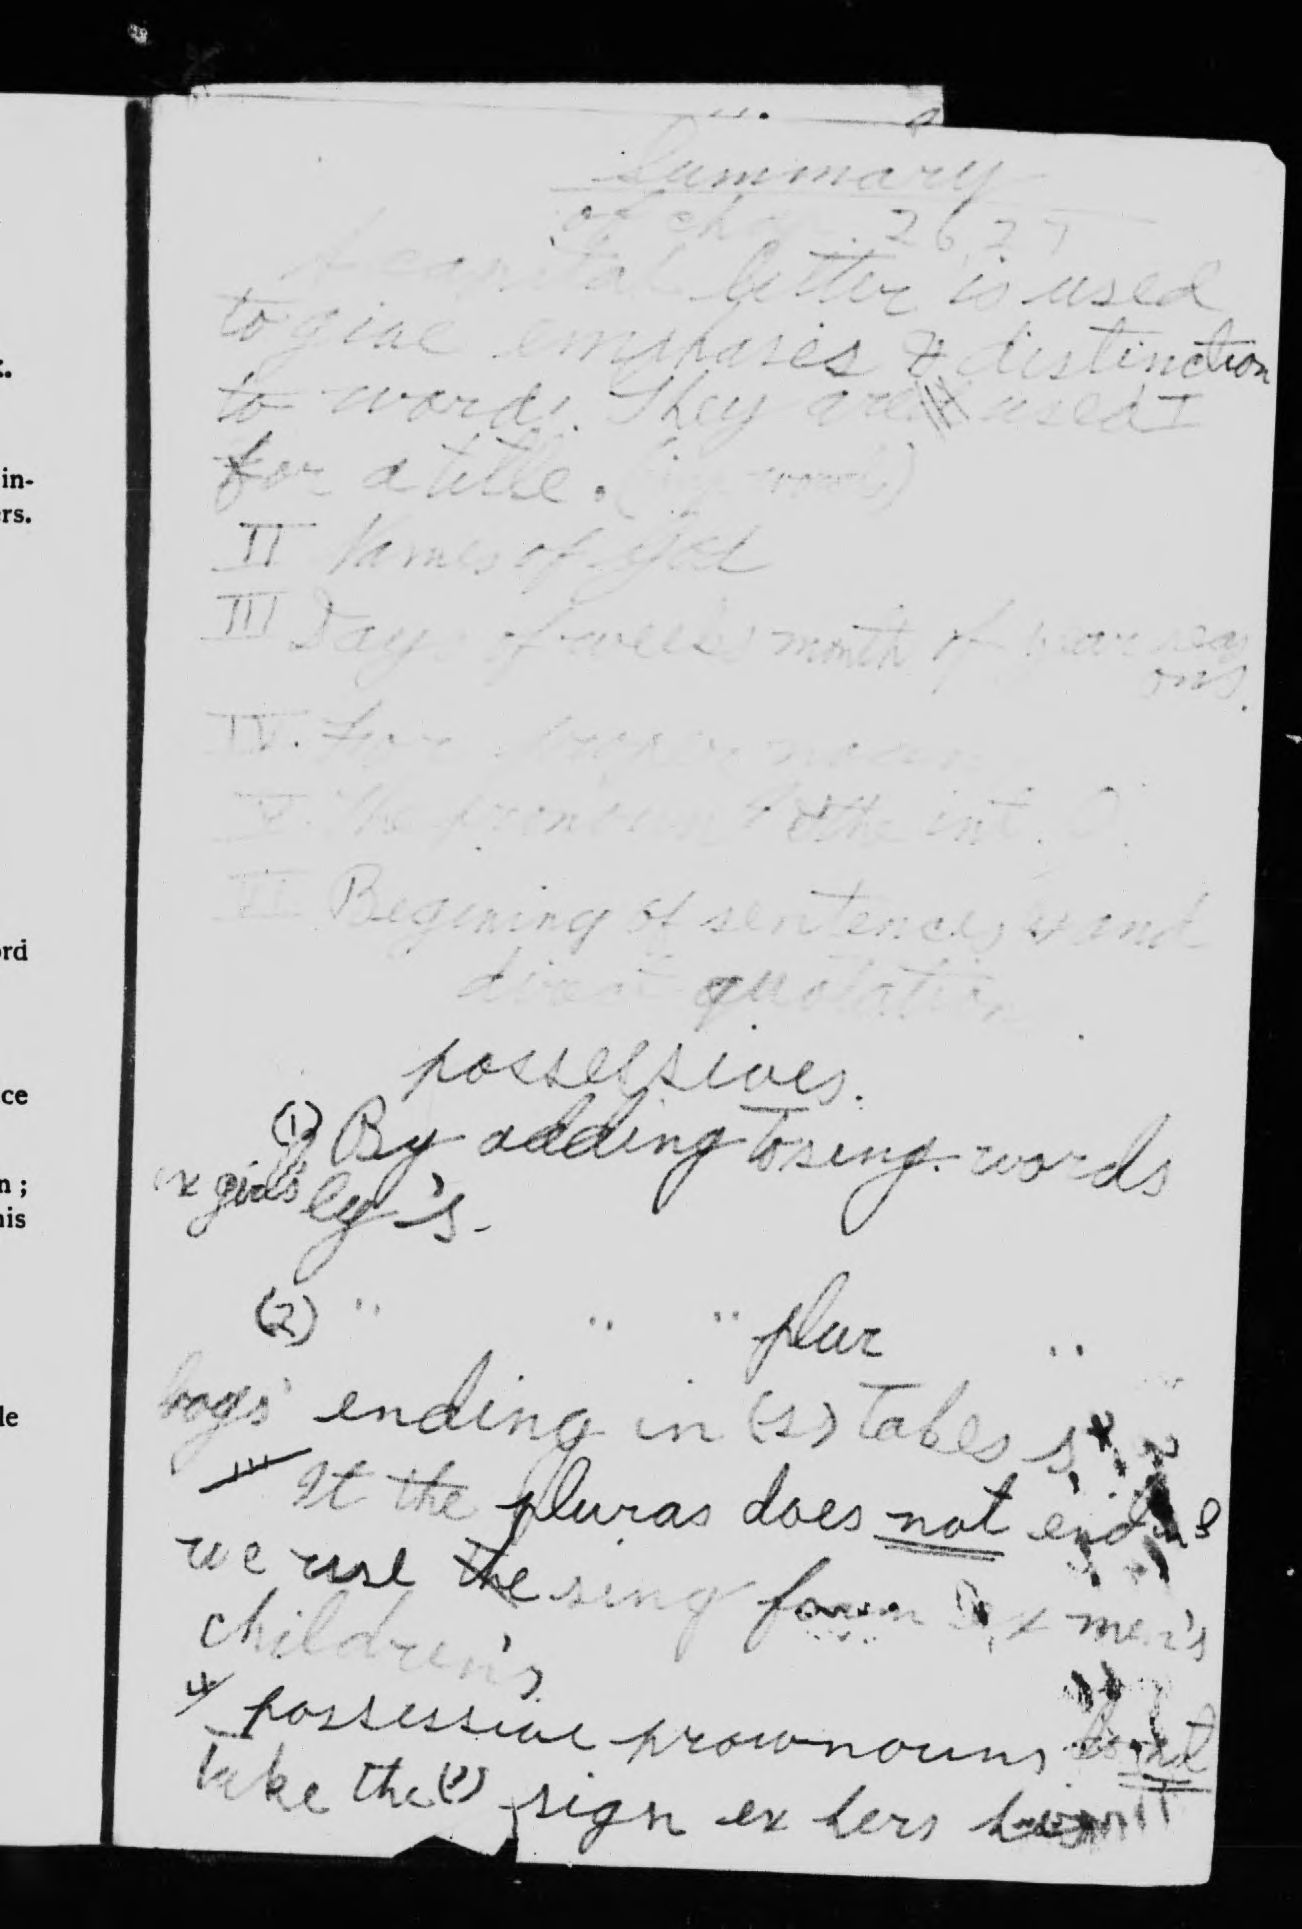 Summary
of chap. 26, 27
A capital letter is used
to give emphases & distinction
to words. They are used I
for a title.
II Names of God
III Days of week month of year seas
ons.
IV. For proper noun
V. The pronoun I & the int. O.
VI Begining of sentences and
direct quotation
possessives.
(1) By adding to sing. words
ex girl's by 's.
(2) " " " plur "
boys' ending in (s) takes s'
III If the pluras does not end in s
we use the sing form ex men's
children's
4 possessive prownouns do not
take the (') sign ex hers
in-
ers.
ord
ce
n ;
his
le